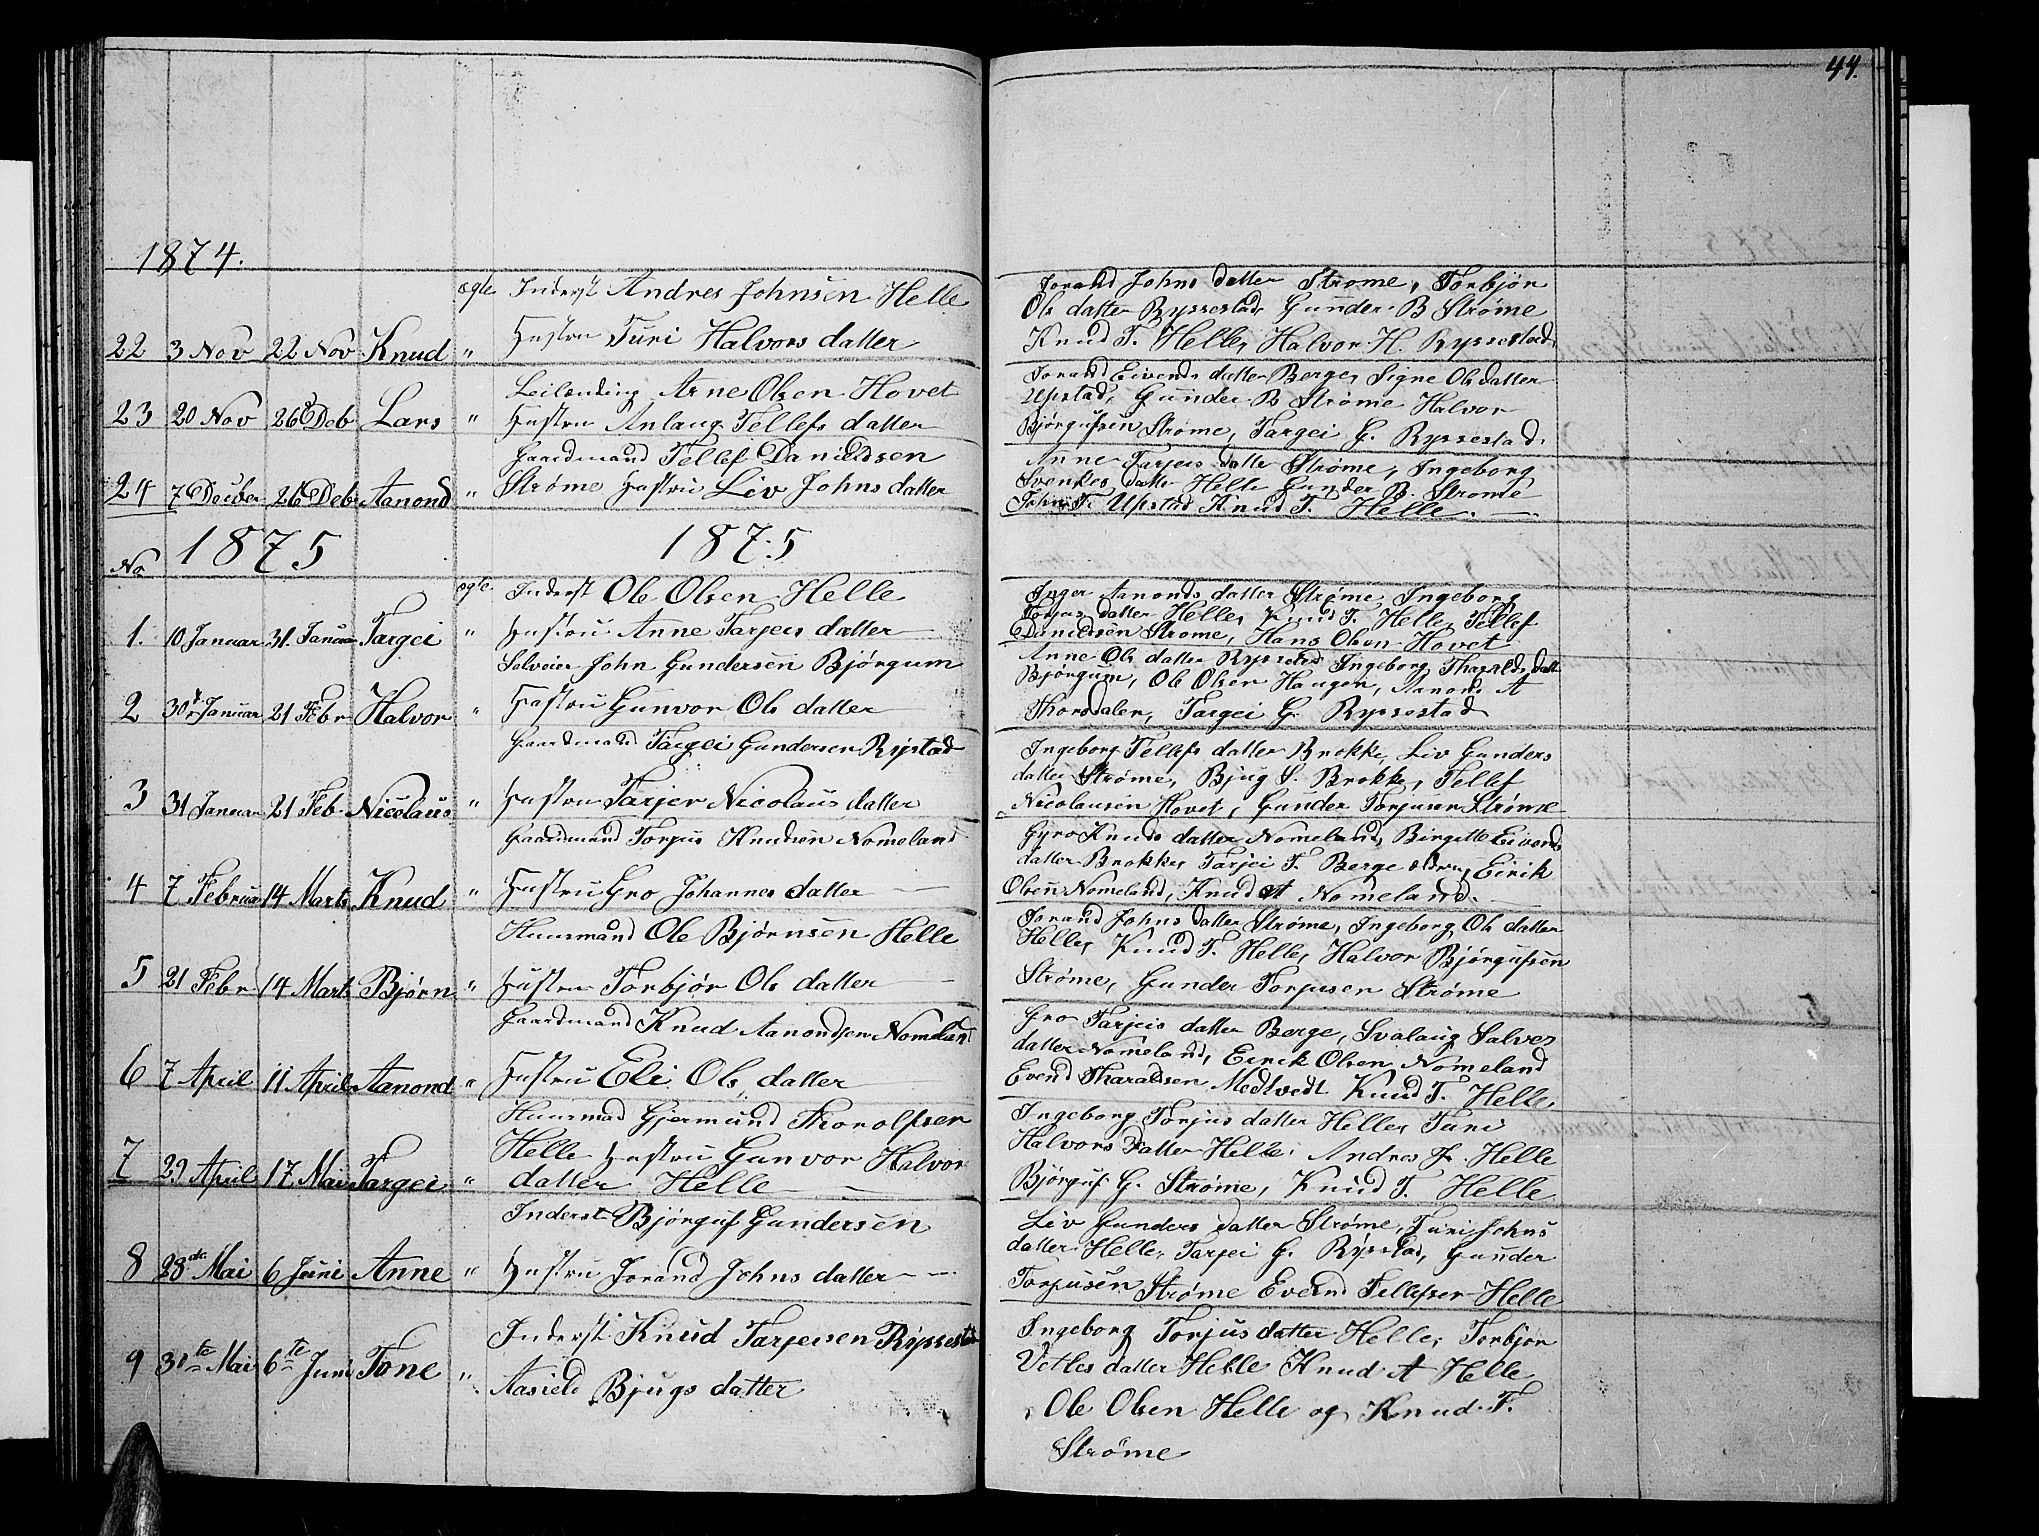 44.
1874.
22 3 Nov 22 Nov Knud
ægte Inderst Andres Johnsen Helle
" Hustru Turi Halvors datter
Jorand Johns datter Strøme, Torbjør
Ols datter Ryssestad, Gunder B Strøme
Knud T. Helle, Halvor H. Ryssestad,
23 20 Nov 26 Deb Lars
Leilending Arne Olsen Hovet
" Hustru Anlaug Tellefs datter
Jorand Eivends datter Berge, Signe Ols datter
Upstad, Gunder B Strøme Halvor
Bjørgufsen Strøme, Targei G. Ryssestad.
24 7 Decber 26 Debr Aanond
Gaardmand Tellef Danieldsen
" Strøme Hustru Liv Johns datter
Anne Tarjeis datter Strøme, Ingeborg
Svenkes datter Helle Gunder B. Strøme
John T. Upstad Knud T. Helle.
No 1875 1875
1. 10 Januar 31. Januar Targei
ægte Inderst Ole Olsen Helle
" Hustru Anne Tarjeis datter
Inger Aanonds datter Strøme, Ingeborg
Torjus datter Helle, Knud T. Helle, Tellef
Danieldsen Strøme, Hans Olsen Hovet
2 30 Januar 21 Febr Halvor
Selveier John Gundersen Bjørgum
" Hustru Gunvor Ols datter
Anne Ols datter Ryssestad Ingeborg Tharalds datt
Bjørgum, Ole Olsen Haugen, Aanond A
Thorsdalen, Targei G. Ryssestad
3 31 Januar 21 Feb. Nicolaus
Gaardmand Targei Gundersen Rystad
" Hustru Tarjer Nicolaus datter
Ingeborg Tellefs datter Brokke, Liv Gunders
datter Strøme, Bjug S. Brokke, Tellef
Nicolausen Hovet, Gunder Torjusen Strøme
4 7 Februar 14 Marts Knud
Gaardmand Torjus Knudsen Nomeland
" Hustru Gro Johannes datter
Gyro Knuds datter Nomeland, Birgitte Eivends
datter Brokke, Tarjei T. Berge Eirik
Olsen Nomeland, Knud A Nomeland.
5 21 Febr 14 Marts Bjørn
Huusmand Ole Bjørnsen Helle
" Hustru Torbjør Ols datter
Jorand Johns datter Strøme, Ingeborg Ols datter
Helle, Knud T. Helle, Halvor Bjørgufsen
Strøme, Gunder Torjusen Strøme
6 7 April 11 April Aanond
Gaardmand Knud Aanondsen Nomeland
" Hustru Eli Ols datter
Gro Tarjeis datter Berge, Svalaug Salves
datter Nomeland, Eirik Olsen Nomeland
Evend Tharaldsen Medtvedt Knud T. Helle,
7 29 April 17 Mai Targei
Huusmad Gjermund Thorolfsen
Helle Hustru Gunvor Halvor
" datter Helle
Ingeborg Torjus datter Helle, Turi
Halvors datter Helle, Andres J. Helle
Bjørguf G. Strøme, Knud T. Helle
8 28de Mai 6 Juni Anne
Inderst Bjørguf Gundersen
" Hustru Jorand Johns datter
Liv Gunders datter Strøme, Turi Johns
datter Helle, Tarjei G. Rysstad, Gunder
Torjusen Strøme Evend Tellefsen Helle
9 31te Mai 6te Juni Tone
Inderst Knud Tarjeisen Ryssestad
" Aasield Bjugs datter
Ingeborg Torjus datter Helle, Torbjør
Vetles datter Helle Knud A Helle
Ole Olsen Helle og Knud T.
Strøme